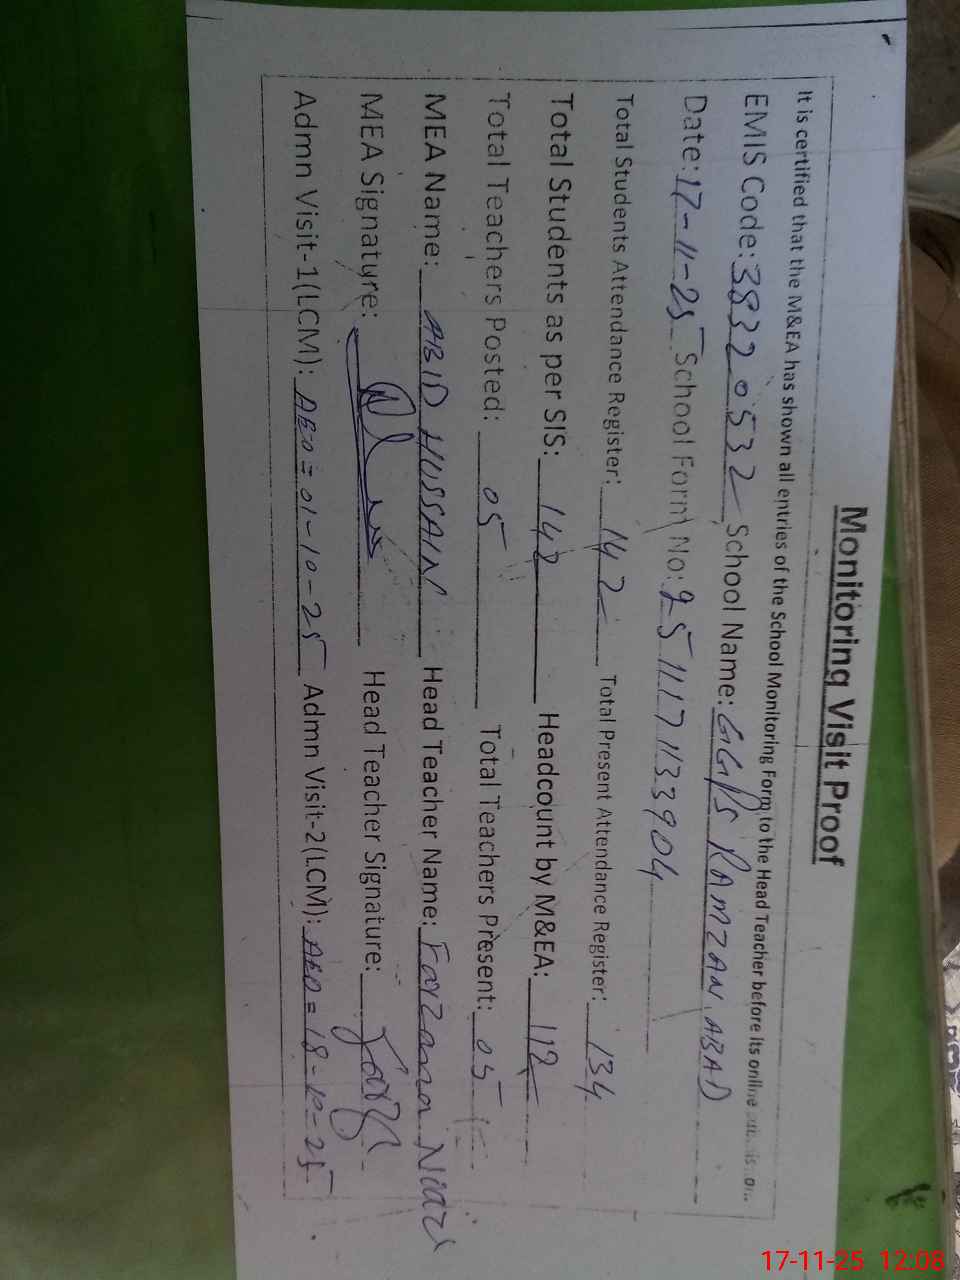 Monitoring Visit Proof
It is certified that the M&EA has shown all entries of the School Monitoring Form to the Head Teacher before its online
EMIS Code: 38320532 School Name: GGPS RAMZAN ABAD
Date: 17-11-25 School Form No: 2511171133904
Total Students Attendance Register: 142 Total Present Attendance Register: 134
Total Students as per SIS: 142 Headcount by M&EA: 112
Total Teachers Posted: 05 Total Teachers Present: 05
MEA Name: ABID HUSSAIN Head Teacher Name: Farzana Niazi
MEA Signature: Head Teacher Signature:
Admn Visit-1(LCM): AEO = 01-10-25 Admn Visit-2(LCM): AEO = 18-10-25
17-11-25 12:08